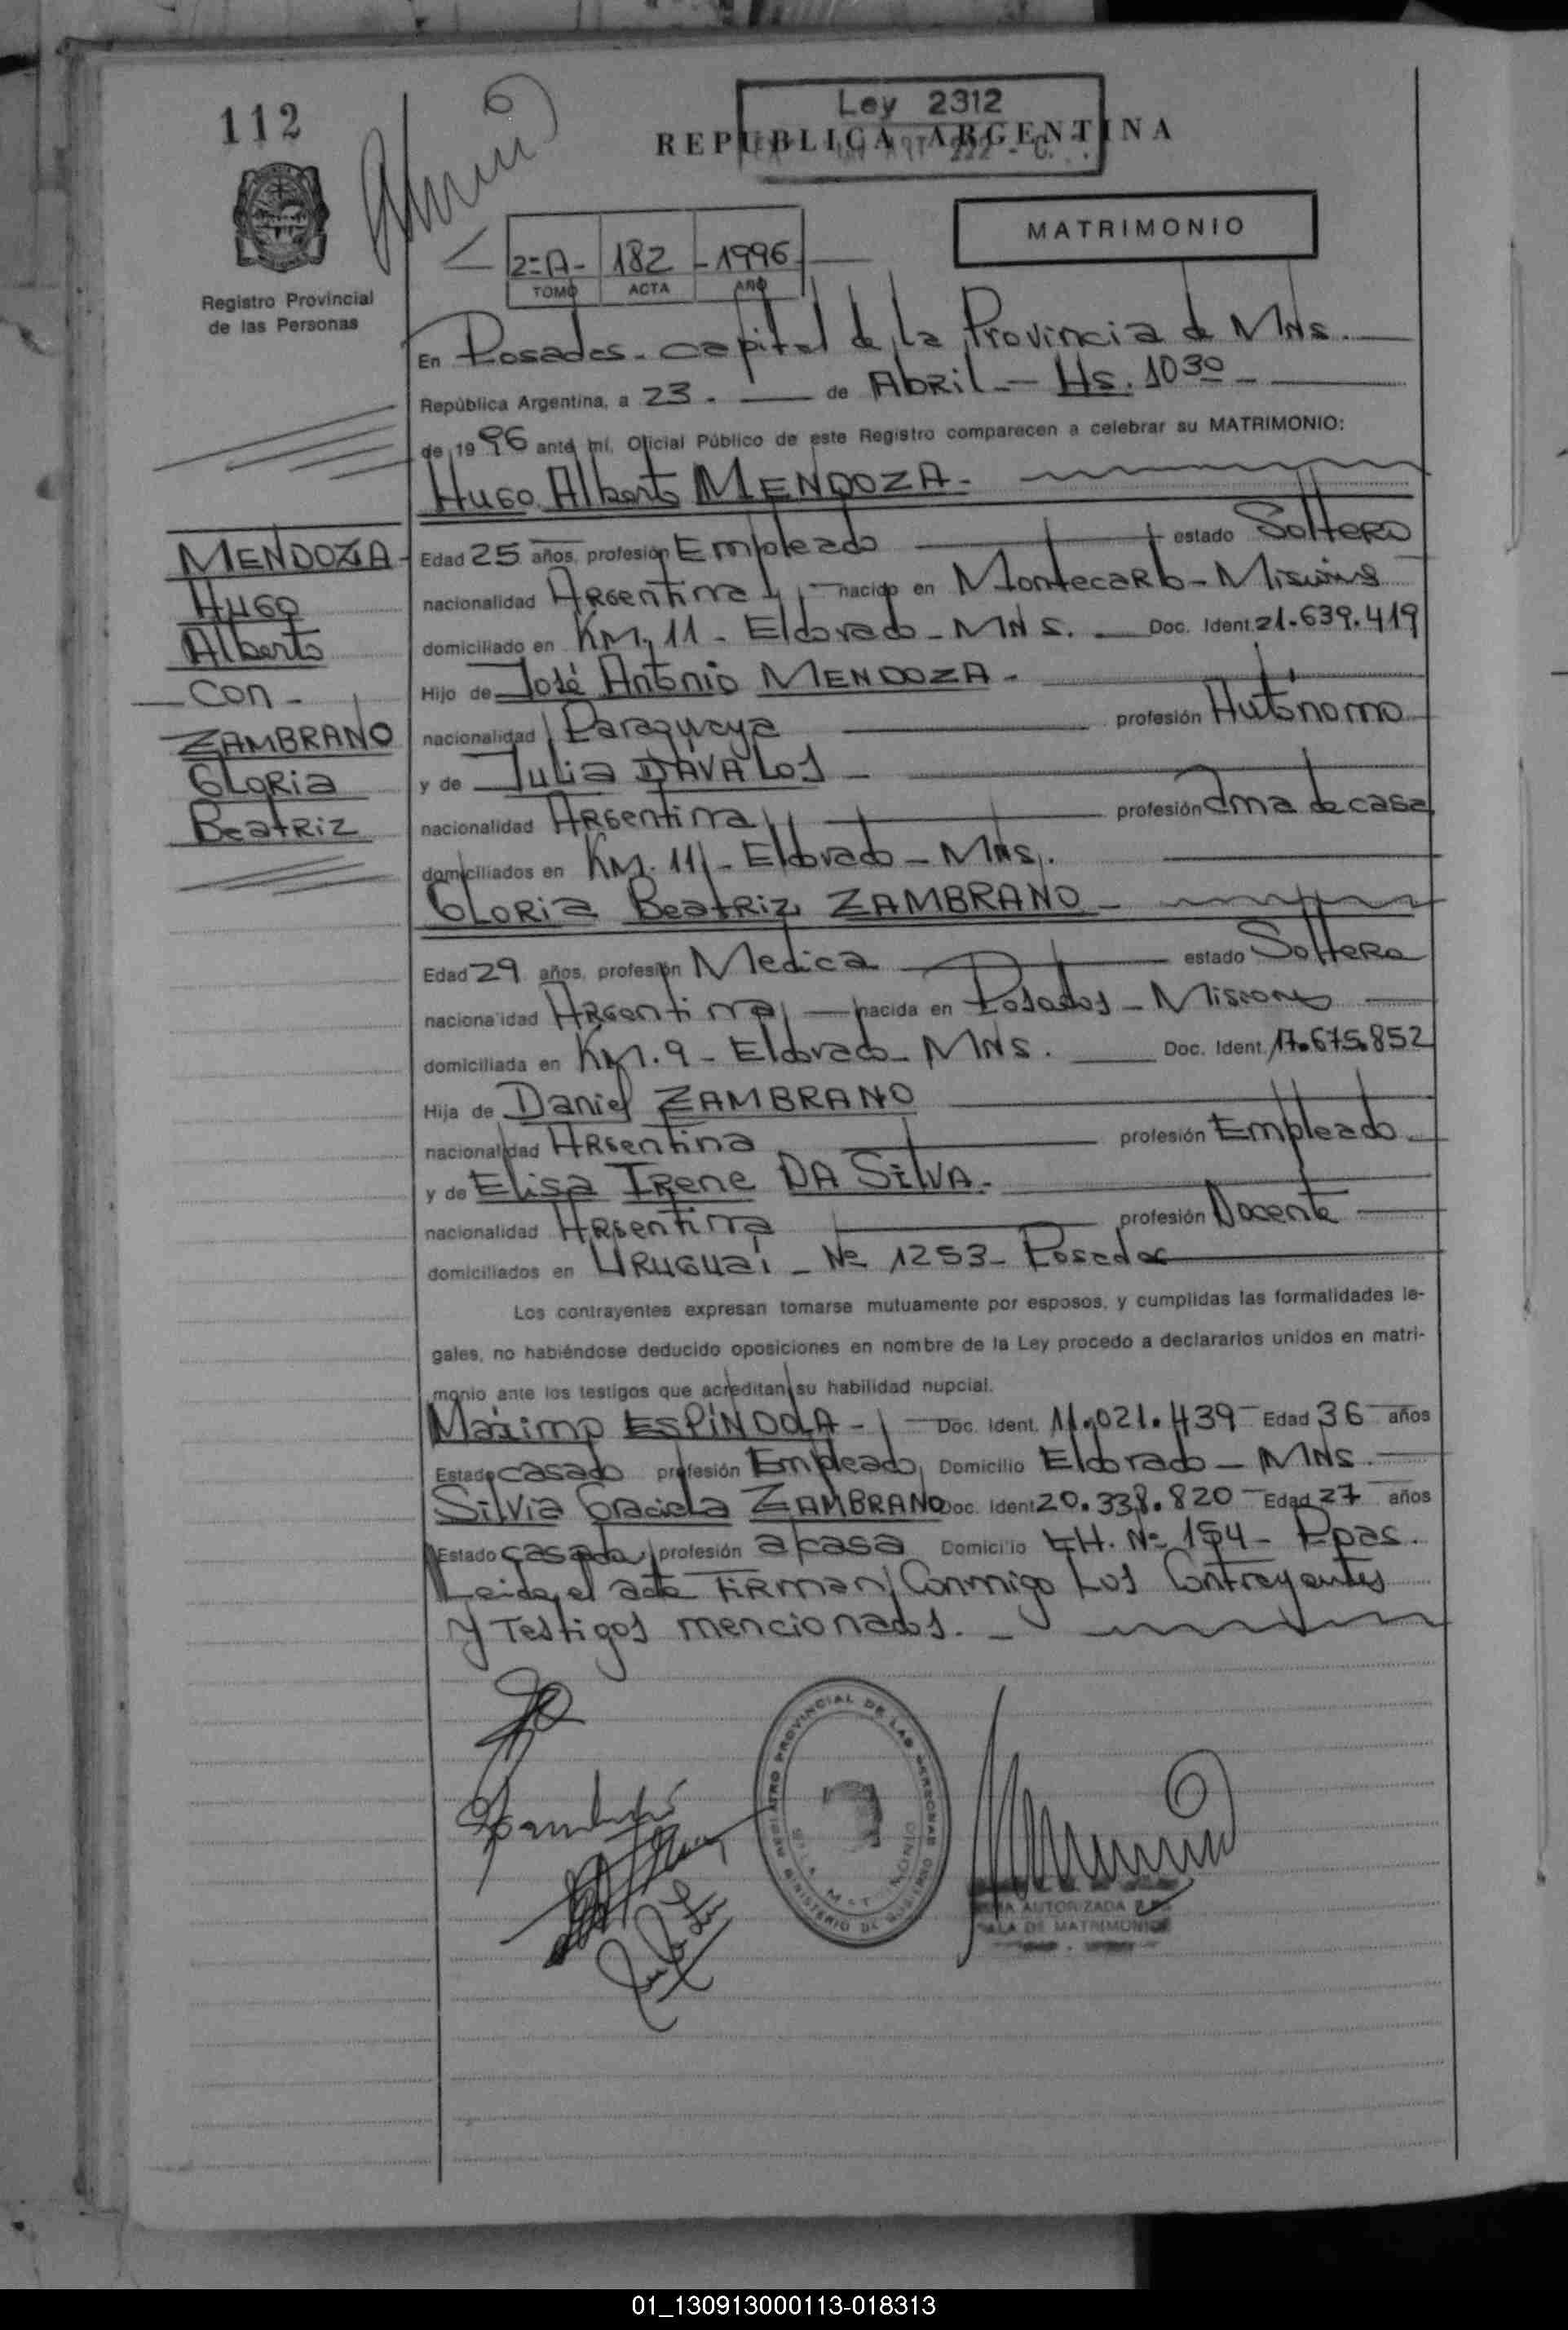 112
Ley 2312
REPUBLICA ARGENTINA
MATRIMONIO
2=A- 182 -1996
TOMO ACTA AÑO
Registro Provincial
de las Personas
En Posadas - capital de la Provincia de MNS.
República Argentina, a 23. de Abril - Hs. 10 30
de 19 96 ante mí, Oficial Público de este Registro comparecen a celebrar su MATRIMONIO:
Hugo Alberto MENDOZA -
MENDOZA -
Hugo
Alberto
Con -
ZAMBRANO
Gloria
Beatriz
Edad 25 años, profesión Empleado estado Soltero
nacionalidad Argentina nacido en Montecarlo - Misiones
domiciliado en KM. 11 - Eldorado - MNS. Doc. Ident. 21.639.419
Hijo de José Antonio MENDOZA -
nacionalidad Paraguaya profesión Autónomo
y de Julia DAVALOS -
nacionalidad Argentina profesión Ama de casa
domiciliados en KM. 11 - Eldorado - MNS.
Gloria Beatriz ZAMBRANO -
Edad 29 años, profesión Medica estado Soltera
nacionalidad Argentina nacida en Posadas - Misiones
domiciliada en KM. 9 - Eldorado - MNS. Doc. Ident. 17.675.852
Hija de Daniel ZAMBRANO
nacionalidad Argentina profesión Empleado
y de Elisa Irene DA SILVA -
nacionalidad Argentina profesión Docente
domiciliados en Uruguai - Nº 1253 - Posadas
Los contrayentes expresan tomarse mutuamente por esposos, y cumplidas las formalidades le-
gales, no habiéndose deducido oposiciones en nombre de la Ley procedo a declararlos unidos en matri-
monio ante los testigos que acreditan su habilidad nupcial.
Máximo ESPÍNDOLA - Doc. Ident. 11.021.439 Edad 36 años
Estado casado profesión Empleado Domicilio Eldorado - MNS.
Silvia Graciela ZAMBRANO Doc. Ident 20.338.820 Edad 27 años
Estado casada profesión acasa Domicilio CH. Nº 154 - Ppas.
Leida el acta firman Conmigo Los Contrayentes
y Testigos mencionados. -
REGISTRO PROVINCIAL DE LAS PERSONAS
MINISTERIO DE GOBIERNO
AUTORIZADA
SALA DE MATRIMONIOS
01_130913000113-018313